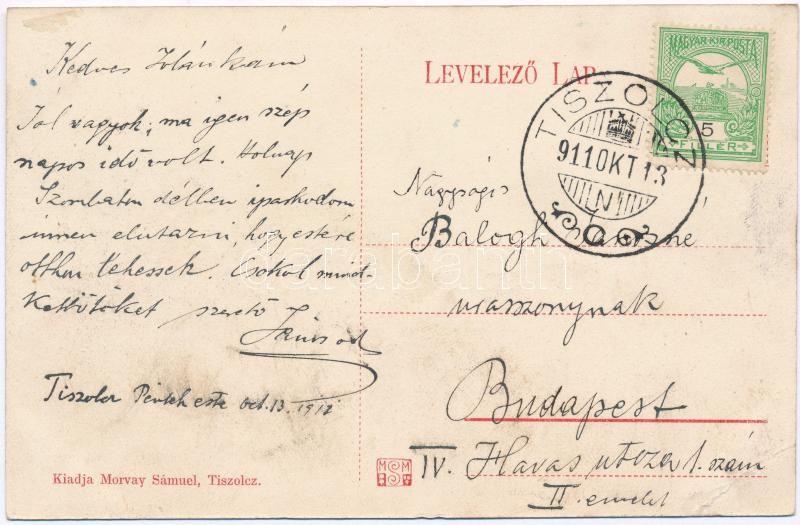 Kedves Jolánkám
Jól vagyok, ma igen szép
napos idő volt. Holnap
Szombaton délben iparkodom
innen elutazni, hogy estére
otthon lehessek. Csókol mind-
kettőtöket szerető
Jánosod
Tiszolcz Péntek este oct. 13. 1911
Kiadja Morvay Sámuel, Tiszolcz.
MSM
LEVELEZŐ LAP
MAGYAR KIR. POSTA
5
FILLÉR
TISZOLCZ
911 OKT 13
N
Nagyságos
Balogh Jánosné
urasszonynak
Budapest
IV. Havas utcza 1. szám
II. emelet
darabanth